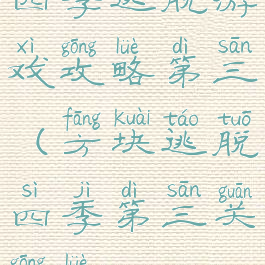 四季逃脱游
xì gōng lüè dì sān
戏攻略第三
fāng kuài táo tuō
（方块逃脱
sì jì dì sān guān
四季第三关
gōng lüè